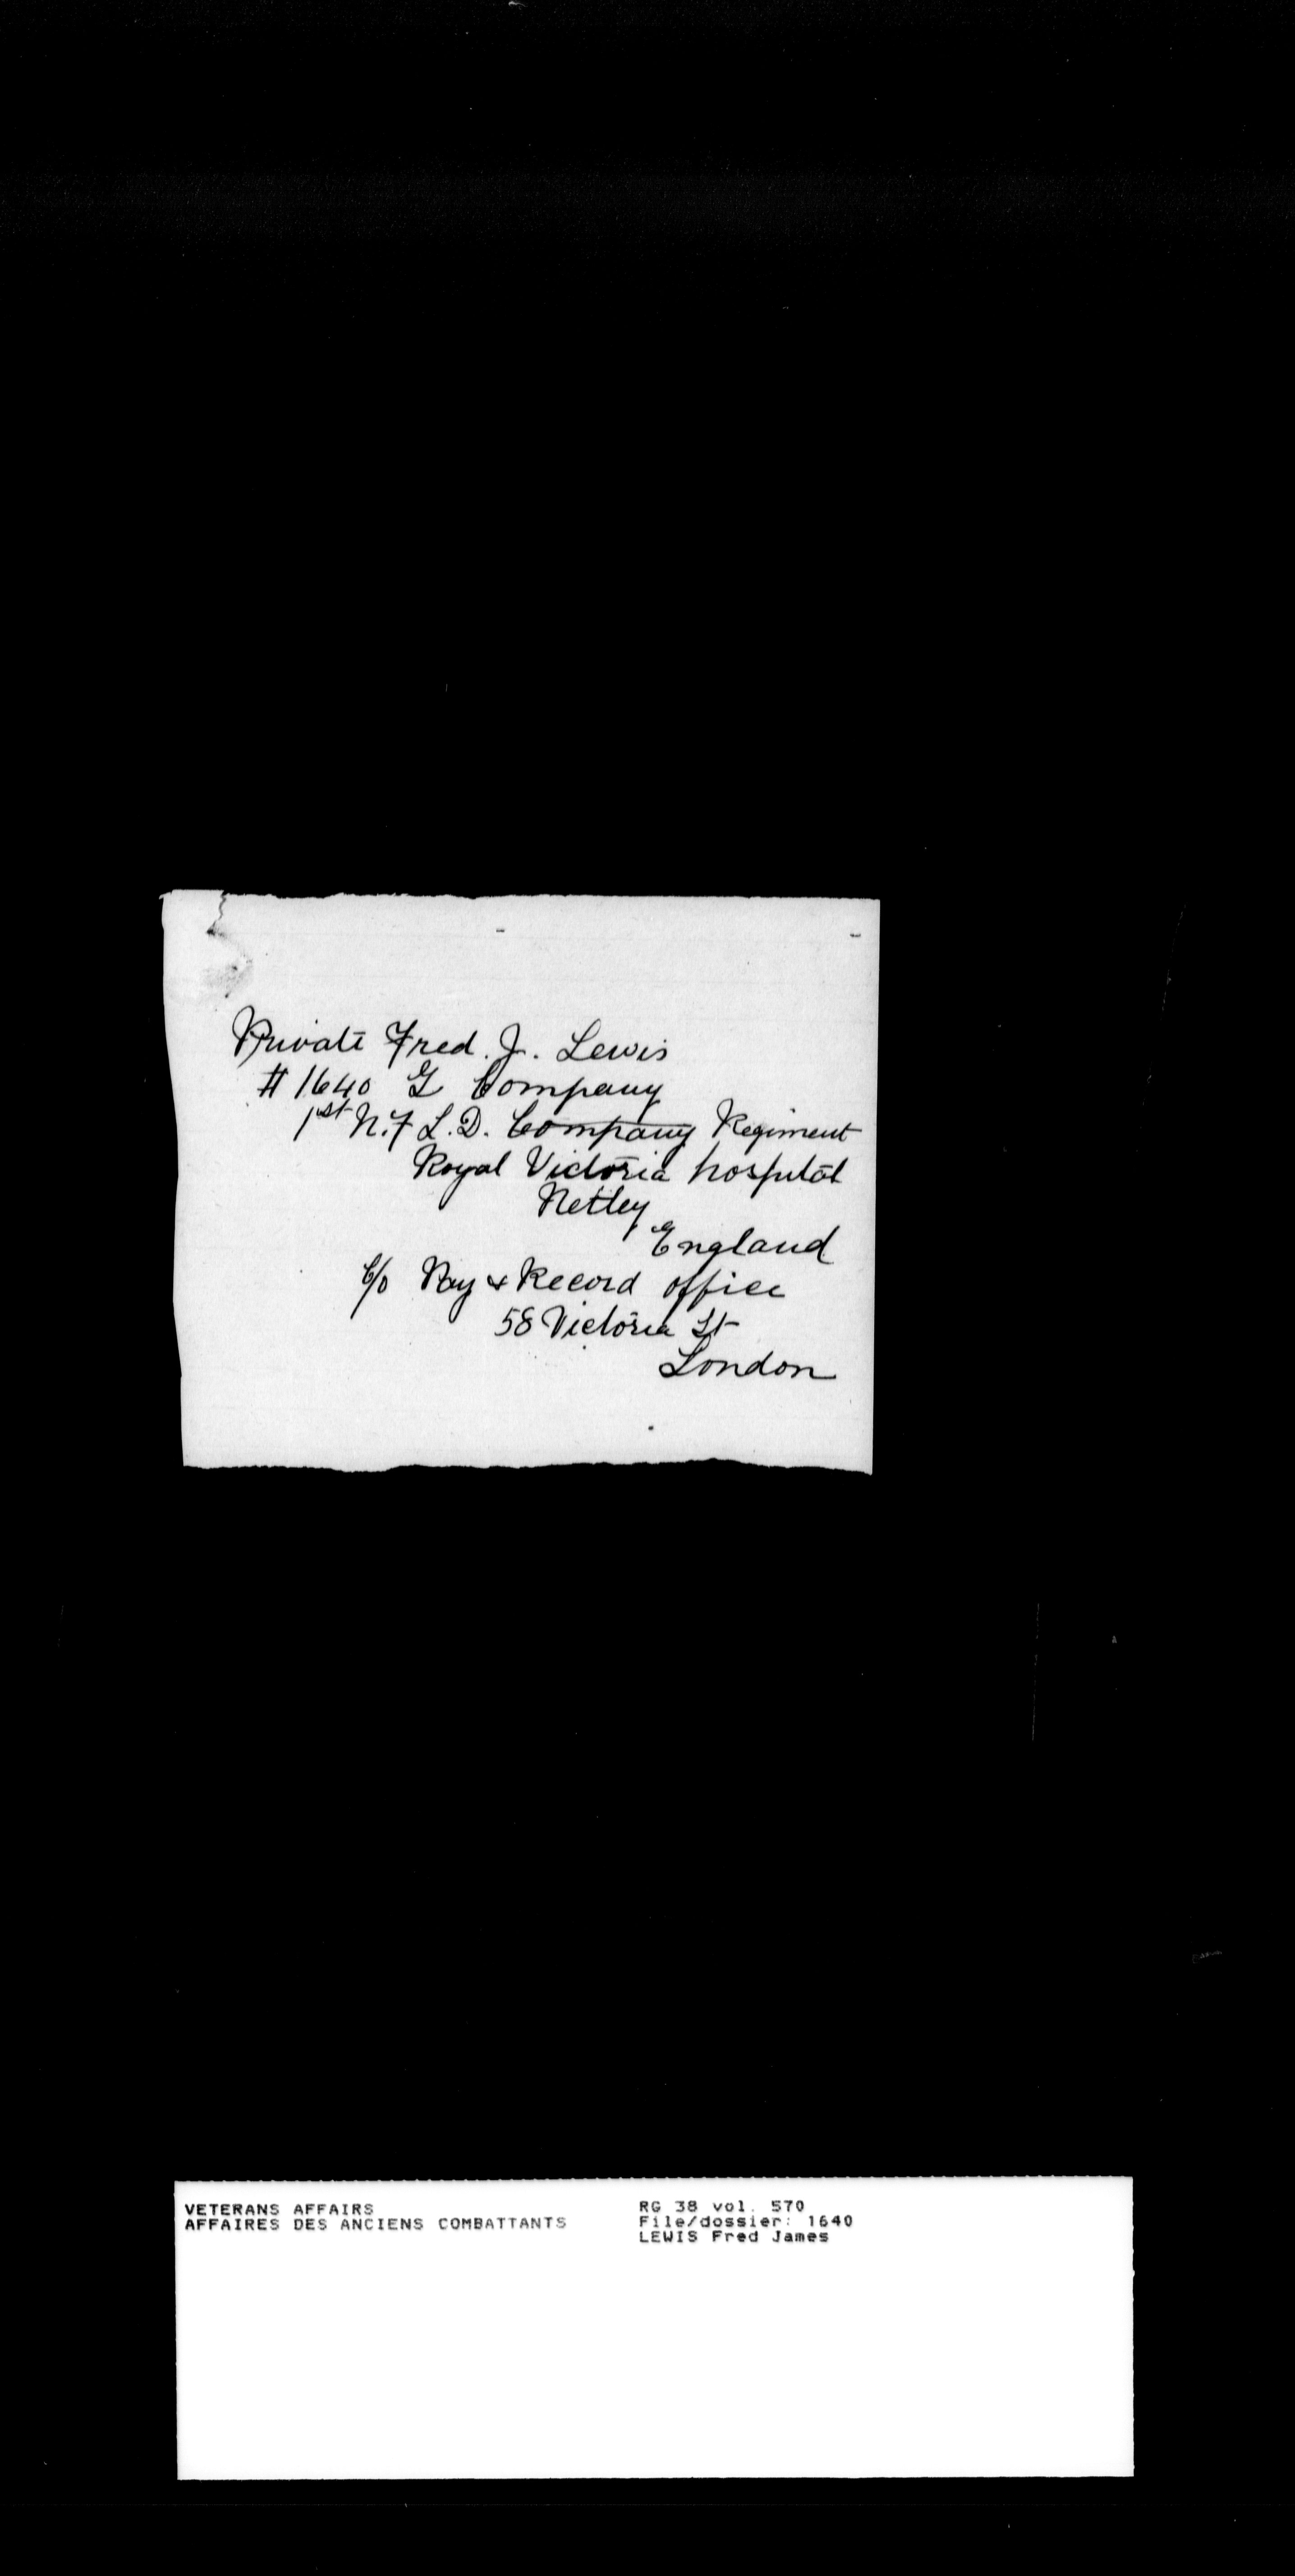 Private Fred. J. Lewis
# 1640 G Company
1st N.F L.D. Company Regiment
Royal Victoria hospital
Netley
England
C/o Pay & Record office
58 Victoria St
London
VETERANS AFFAIRS
AFFAIRES DES ANCIENS COMBATTANTS
RG 38 vol. 570
File/dossier: 1640
LEWIS Fred James